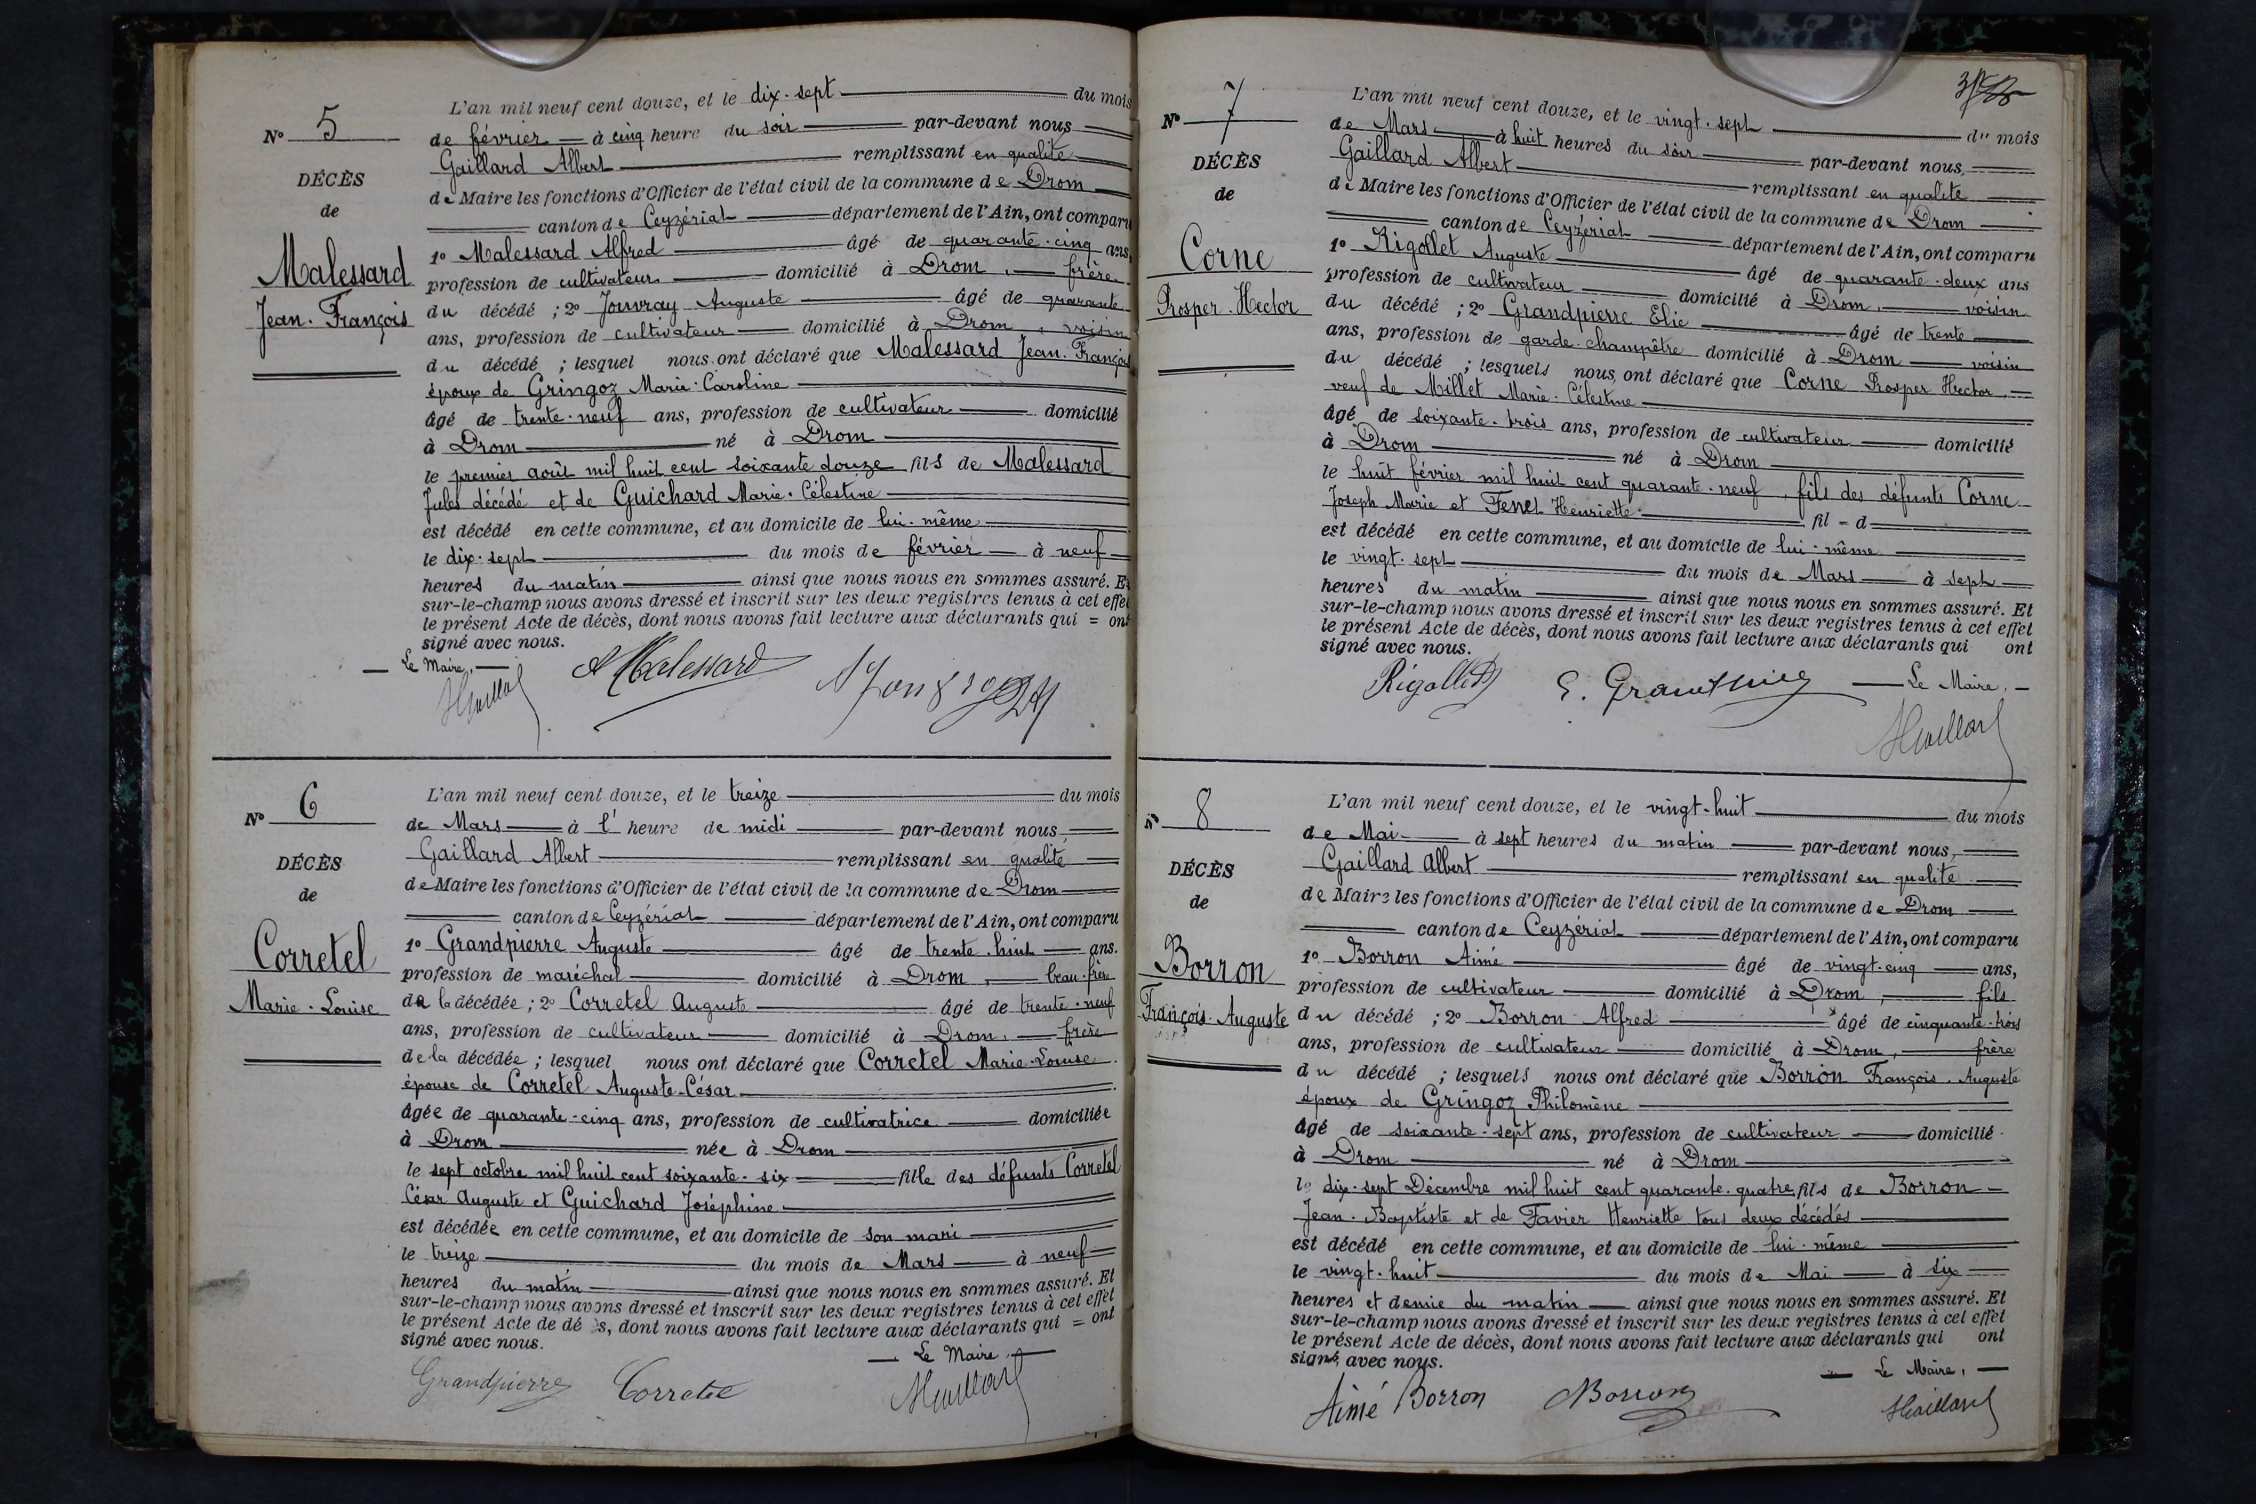 N° 5
DÉCÈS
de
Malessard
Jean-François
L'an mil neuf cent douze, et le dix-sept du mois
de février à cinq heure du soir par-devant nous
Gaillard Albert remplissant en qualité
de Maire les fonctions d'Officier de l'état civil de la commune de Drom
canton de Ceyzériat département de l'Ain, ont comparu
1° Malessard Alfred âgé de quarante-cinq ans,
profession de cultivateur domicilié à Drom, frère
du décédé ; 2° Jouvray Auguste âgé de quarante
ans, profession de cultivateur domicilié à Drom, voisin
du décédé ; lesquel nous ont déclaré que Malessard Jean-François
époux de Gringoz Marie-Caroline
âgé de trente-neuf ans, profession de cultivateur domicilié
à Drom né à Drom
le premier août mil huit cent soixante douze fils de Malessard
Jules décédé et de Guichard Marie-Célestine
est décédé en cette commune, et au domicile de lui-même
le dix-sept du mois de février à neuf
heures du matin ainsi que nous nous en sommes assuré. Et
sur-le-champ nous avons dressé et inscrit sur les deux registres tenus à cet effet
le présent Acte de décès, dont nous avons fait lecture aux déclarants qui = ont
signé avec nous.
Le Maire,
AGaillard
A Malessard
N° 6
DÉCÈS
de
Corretel
Marie-Louise
L'an mil neuf cent douze, et le treize du mois
de Mars à l'heure de midi par-devant nous
Gaillard Albert remplissant en qualité
de Maire les fonctions d'Officier de l'état civil de la commune de Drom
canton de Ceyzériat département de l'Ain, ont comparu
1° Grandpierre Auguste âgé de trente-huit ans.
profession de maréchal domicilié à Drom, beau-frère
de la décédée ; 2° Corretel Auguste âgé de trente-neuf
ans, profession de cultivateur domicilié à Drom, frère
de la décédée ; lesquel nous ont déclaré que Corretel Marie-Louise
épouse de Corretel Auguste-César
âgée de quarante-cinq ans, profession de cultivatrice domiciliée
à Drom née à Drom
le sept octobre mil huit cent soixante-six fille des défunts Corretel
César Auguste et Guichard Joséphine
est décédée en cette commune, et au domicile de son mari
le treize du mois de Mars à neuf
heures du matin ainsi que nous nous en sommes assuré. Et
sur-le-champ nous avons dressé et inscrit sur les deux registres tenus à cet effet
le présent Acte de décès, dont nous avons fait lecture aux déclarants qui = ont
signé avec nous.
Le Maire
Grandpierre Corretel AGaillard
N° 7
DÉCÈS
de
Corne
Prosper-Hector
L'an mil neuf cent douze, et le vingt-sept du mois
de Mars à huit heures du soir par-devant nous,
Gaillard Albert remplissant en qualité
de Maire les fonctions d'Officier de l'état civil de la commune de Drom
canton de Ceyzériat département de l'Ain, ont comparu
1° Rigollet Auguste âgé de quarante-deux ans
profession de cultivateur domicilié à Drom, voisin
du décédé ; 2° Grandpierre Elie âgé de trente
ans, profession de garde-champêtre domicilié à Drom voisin
du décédé ; lesquels nous ont déclaré que Corne Prosper Hector,
veuf de Millet Marie-Célestine
âgé de soixante-trois ans, profession de cultivateur domicilié
à Drom né à Drom
le huit février mil huit cent quarante-neuf, fils des défunts Corne
Joseph Marie et Fenet Henriette fil - d
est décédé en cette commune, et au domicile de lui-même
le vingt-sept du mois de Mars à sept
heures du matin ainsi que nous nous en sommes assuré. Et
sur-le-champ nous avons dressé et inscrit sur les deux registres tenus à cet effet
le présent Acte de décès, dont nous avons fait lecture aux déclarants qui ont
signé avec nous.
Rigollet E. Grandpierre Le Maire,
AGaillard
N° 8
DÉCÈS
de
Borron
François-Auguste
L'an mil neuf cent douze, et le vingt-huit du mois
de Mai à sept heures du matin par-devant nous,
Gaillard Albert remplissant en qualité
de Maire les fonctions d'Officier de l'état civil de la commune de Drom
canton de Ceyzériat département de l'Ain, ont comparu
1° Borron Aimé âgé de vingt-cinq ans,
profession de cultivateur domicilié à Drom, fils
du décédé ; 2° Borron Alfred âgé de cinquante-trois
ans, profession de cultivateur domicilié à Drom, frère
du décédé ; lesquels nous ont déclaré que Borron François-Auguste
époux de Gringoz Philomène
âgé de soixante-sept ans, profession de cultivateur domicilié
à Drom né à Drom
le dix-sept Décembre mil huit cent quarante-quatre fils de Borron
Jean-Baptiste et de Favier Henriette tous deux décédés
est décédé en cette commune, et au domicile de lui-même
le vingt-huit du mois de Mai à six
heures et demie du matin ainsi que nous nous en sommes assuré. Et
sur-le-champ nous avons dressé et inscrit sur les deux registres tenus à cet effet
le présent Acte de décès, dont nous avons fait lecture aux déclarants qui ont
signé avec nous.
Le Maire,
Aimé Borron ABorron AGaillard